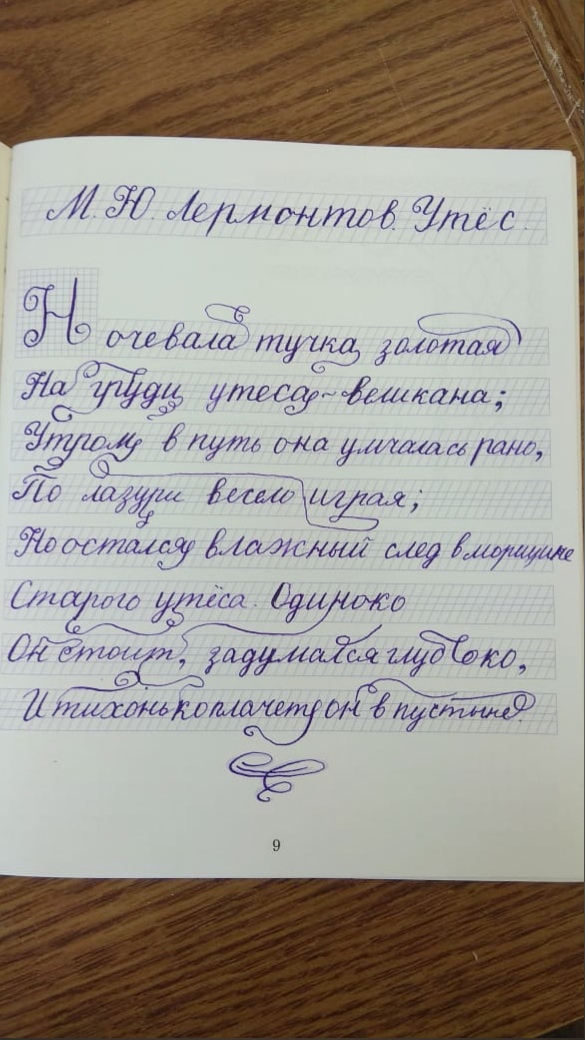 М. Ю. Лермонтов. Утёс.
Ночевала тучка золотая
На груди утеса-великана;
Утром в путь она умчалась рано,
По лазури весело играя;
Но остался влажный след в морщине
Старого утёса. Одиноко
Он стоит, задумался глубоко,
И тихонько плачет он в пустыне.
9